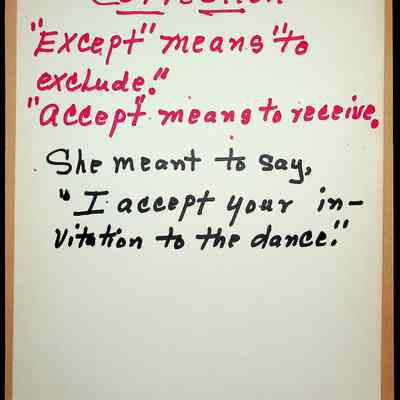 Correction
"Except" means "to
exclude."
"Accept" means to receive.
She meant to say,
"I accept your in-
vitation to the dance."